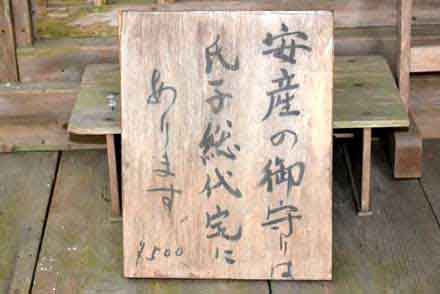 安産の御守りは
氏子総代宅に
あります
¥500